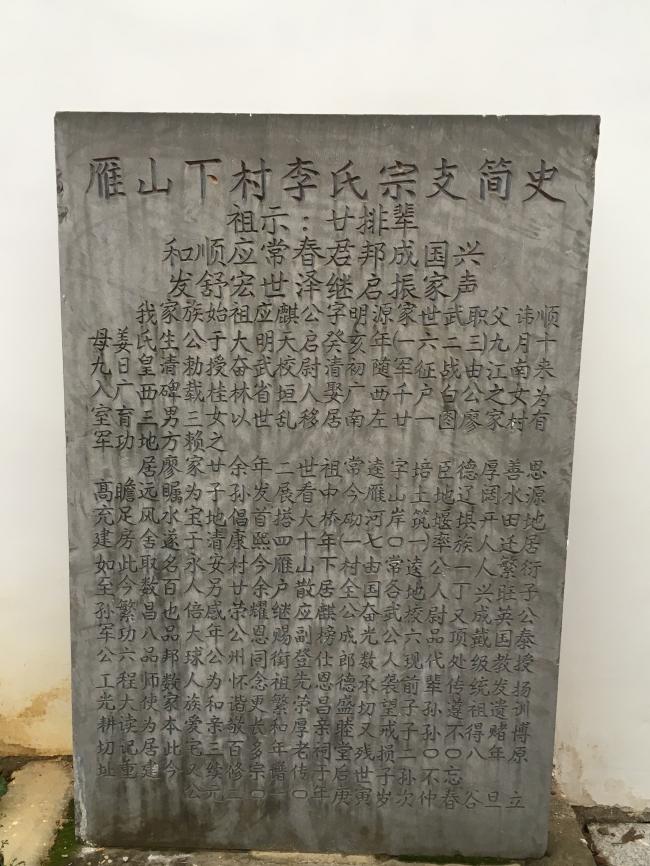 雁山下村李氏宗支简史
祖示：廿排辈
和顺应常春君邦成国兴
发舒宏世泽继启振家声
我家族始祖应麒公字明源家世武职父讳顺
母姜氏生公于大明天启癸亥年(一六二三)九月十
九日皇清勅授奋武校尉清初随军征战由江南来
入广西碑载桂林省垣人娶广西千户白公之女为
室育二男三女以世乱移居南左廿一图廖家村有
军功地方赖之
居廖家廿余年二世祖常逵字培臣德厚善恩
高瞻远瞩为子孙发展看中今雁山土地辽阔水源
充足风水宝地倡首搭大桥砌河岸筑堰堤开田地
建房舍遂于清康熙四十年(一七〇一)率族人迁居
如此取名永安村今雁山下村由常逵公一人繁衍
至今数百人另廿余户散居全国各地丁人兴旺子
孙繁昌也倍感荣耀继应麒公奋武校尉又成英公
军功八品大年公恩赐副榜成光公六品顶戴国泰
公六品邦球公州同衔登仕郎数人现代处级教授
工程师数人为怀念祖先恩德承袭前辈传统发扬
光大使家族和谐更繁荣昌盛切望子孙遵祖遗训
耕读为本爱亲敬长和厚亲睦又戒子孙不得赌博
切记居此宅三百多年老祠堂残损二〇〇八年原
址重建今又续修宗谱传于后世子孙不忘
公元二〇一〇年庚寅岁次仲春谷旦立